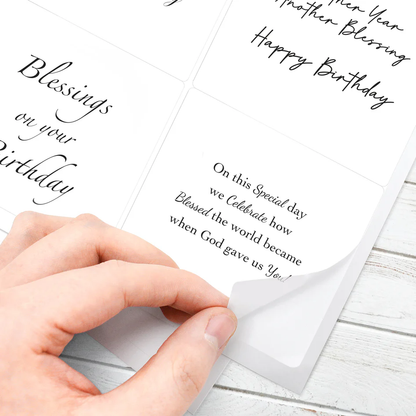 other Year
Another Blessing
Happy Birthday
Blessings
on your
Birthday
On this Special day
we Celebrate how
Blessed the world became
when God gave us You!